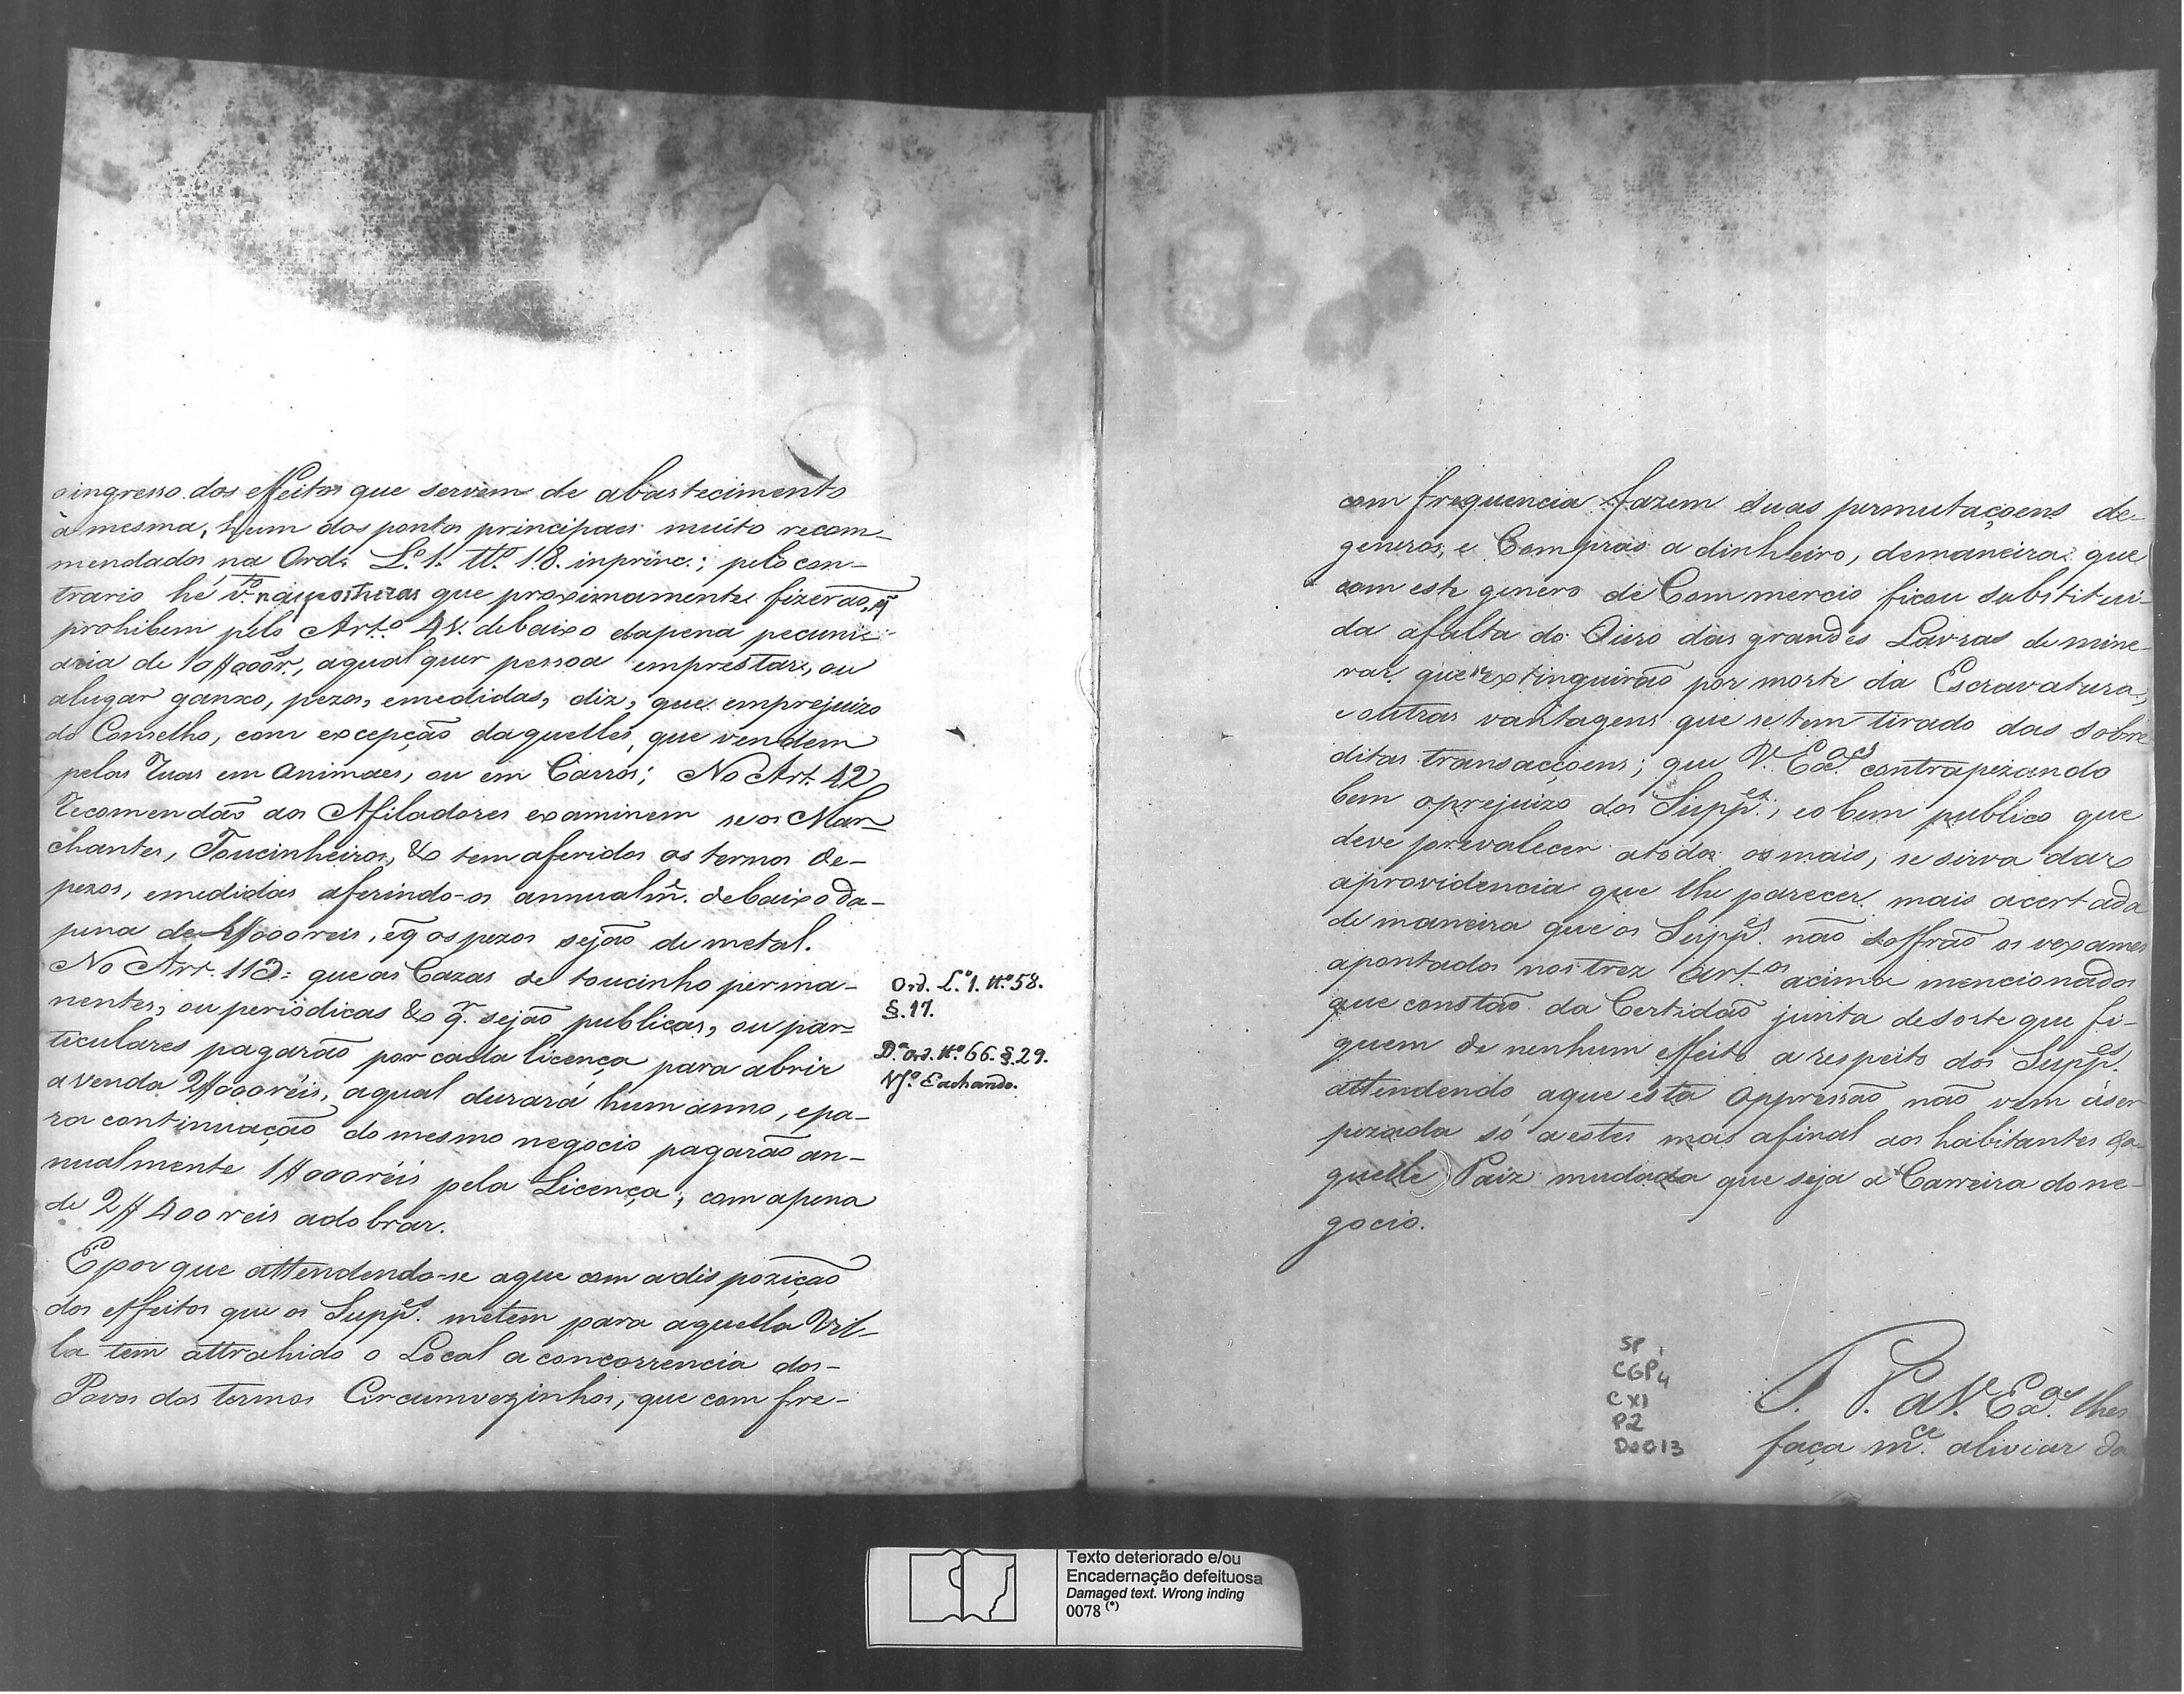 o ingresso dos effeitos que servem de abastecimento
à mesma, hum dos pontos principaes muito recom-
mendados na Ord. L.º 1. tt.º 18. inprinc.; pelo con-
trario hé v.to nas posturas que proximamente fizerão, q̃
prohibem pelo Art.º 41. debaixo dapena pecuni-
aria de 10//000r.s, aqual quer pessoa emprestar, ou
alugar ganxo, pezos, emedidas, diz, que emprejuizo
do Conselho, com excepção daquelles, que vendem
pelas ruas em Animaes, ou em Carros; No Art. 42
recomendão aos Afiladores examinem se os Mar-
chantes, Toucinheiros, & tem aferidos os ternos de-
pezos, emedidas aferindo-os annualm.e debaixo da-
pena de 4//000 reis, eq̃ os pezos sejão de metal.
No Art. 113: que as Cazas de toucinho perma-
nentes, ou periódicas & q.r sejão publicas, ou par-
ticulares pagarão por cada licença para abrir
a venda 2//000réis, aqual durará hum anno, epa-
ra continuação do mesmo negocio pagarão an-
nualmente 1//000réis pela Licença; com apena
de 2//400 reis adobrar.
E por que attendendo-se aque com adispozição
dos effeitos que os Supp.es metem para aquella Vil-
la tem attrahido o Local a concorrencia dos-
Povos dos termos Circumvezinhos, que com fre-
Ord. L.º 1. tt.º 58.
§. 17.
D.ª Ord. tt.º 66. §. 29.
com frequencia fazem suas permutaçoens de-
generos, e Compras a dinheiro, demaneira que
com este genero de Commercio ficou substitui-
da afalta do Ouro das grandes Lavras de mine-
rar, que se extinguirão por morte da Escravatura,
e outras vantagens que setem tirado das sobre
ditas transacçoens; que V. Ex.as contrapezando
bem oprejuizo dos Supp.es, eo bem publico que
deve prevalecer atodos os mais, se sirva dar
aprovidencia que lhe parecer mais acertada
de maneira que os Supp.es não soffrão os vexames
apontados nos trez Art.os acima mencionados
que constão da Certidão junta desorte que fi-
quem de nenhum effeito a respeito dos Supp.es
attendendo aque esta oppressão não vem áser
pezada só aestes mas afinal aos habitantes da-
quelle Paiz mudada que seja a Carreira do ne-
gocio.
P. a V. Ex.as lhes
faça m.ce aliviar da
SP
CGP4
CX1
P2
Do013
Texto deteriorado e/ou
Encadernação defeituosa
Damaged text. Wrong inding
0078 (*)